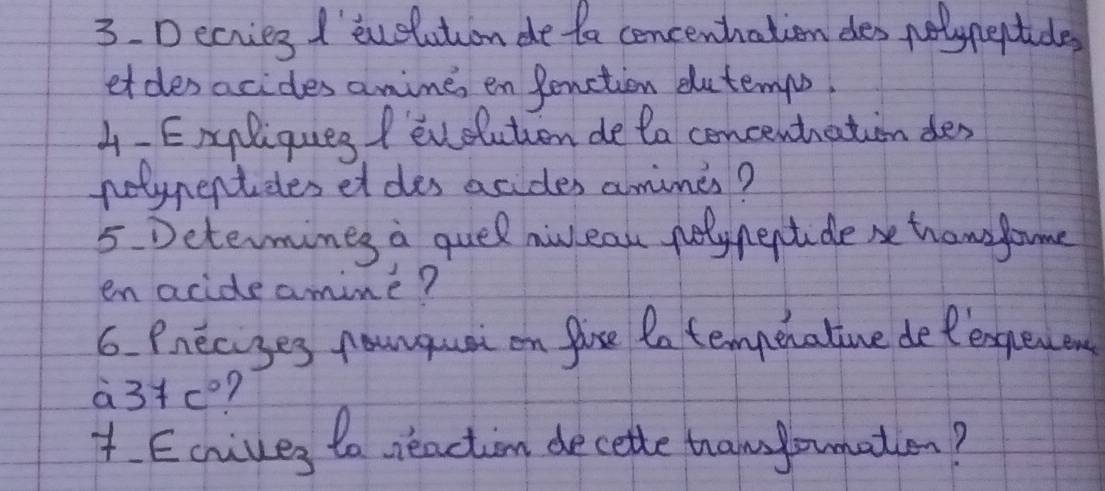 3-Decriez l'évolution de la concentration des polypeptides
et des acides aminés en fonction du temps.
4-Expliquez l'évolution de la concentration des
polypeptides et des acides aminés?
5-Determinez à quel niveau polypeptide se transforme
en acide aminé?
6-Précizez pourquoi on fixe la température de l'experien
à 37 c°?
7-Ecrivez la réaction de cette transformation?